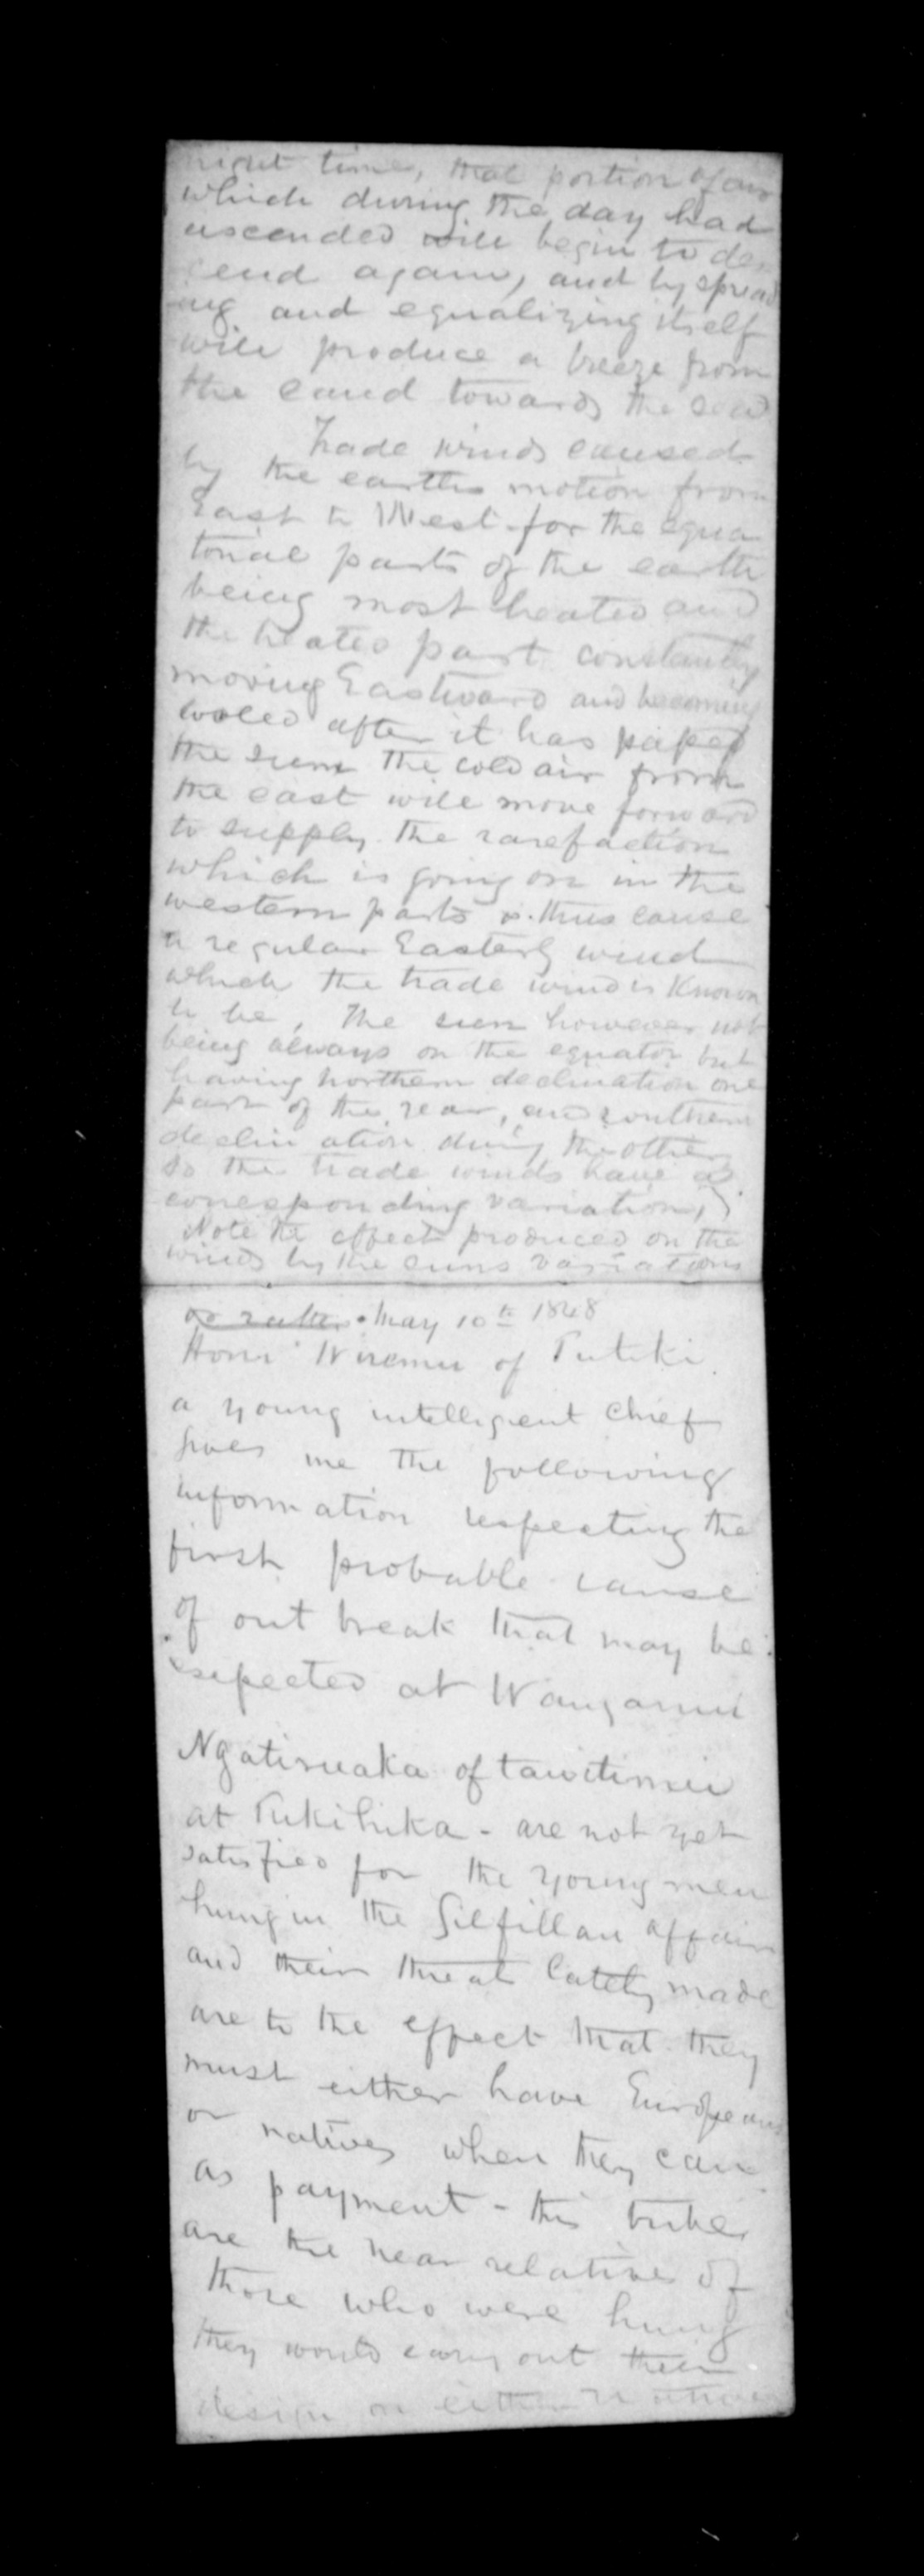 night time, that portion of air
which during the day had
ascended will begin to des
cend again, and by spread
ing and equalizing itself
will produce a breeze from
the land towards the sea
Trade winds caused
by the earths motion from
East to West for the equa
torial parts of the earth
being most heated and
the heated part constantly
moving Eastward and becoming
cooled after it has passed
the sun the cold air from
the east will move forward
to supply the rarefaction
which is going on in the
western parts & thus cause
a regular Easterly wind
which the trade wind is known
to be, The sun however not
being always on the equator but
having northern declination one
part of the year, and southern
declination during the other
so the trade winds have a
corresponding variation,
Note the effect produced on the
winds by the suns variations
May 10th 1848
Hori Wiremu of Putiki
a young intelligent chief
gives me the following
information respecting the
first probable cause
of out break that may be
expected at Wanganui
Ngatiruaka of
at - are not yet
satisfied for the young men
hung in the Gilfillan affair
and their threat lately made
are to the effect that they
must either have Europeans
or natives when they can
as payment - this tribe
are the near relative of
those who were hung
they would carry out their
design on either